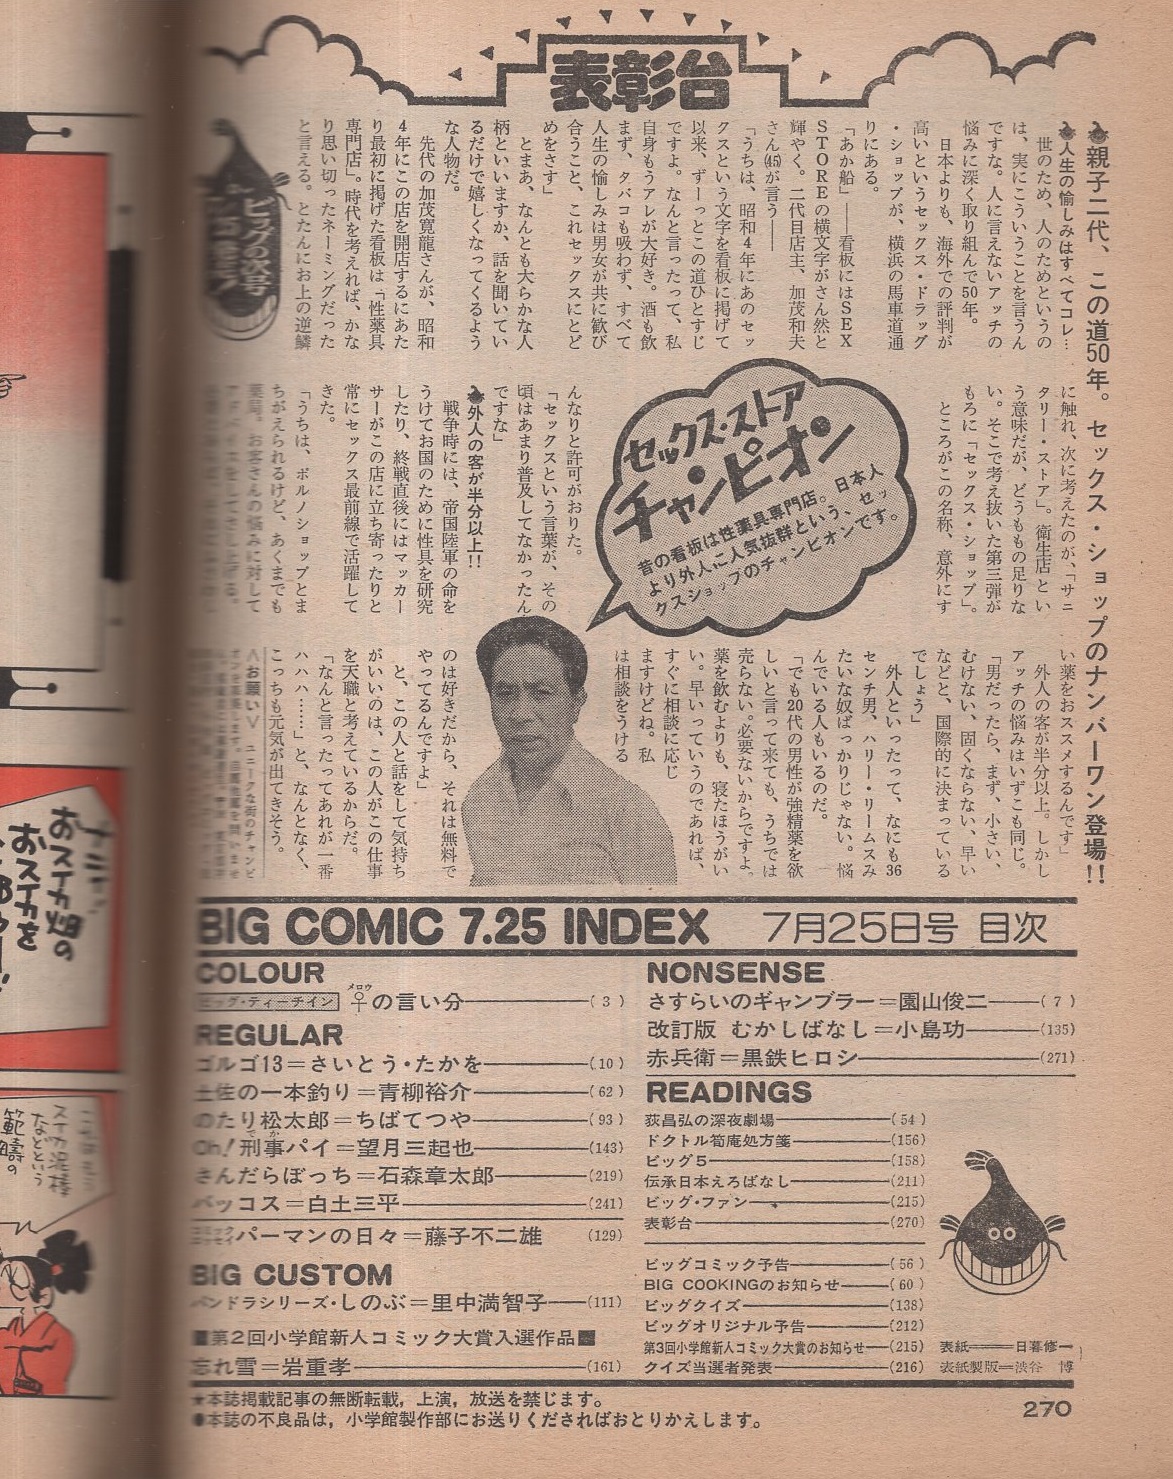 表彰台
親子二代、この道50年。セックス・ショップのナンバーワン登場!!
人生の愉しみはすべてコレ…
世のため、人のためというの
は、実にこういうことを言うん
ですな。人に言えないアッチの
悩みに深く取り組んで50年。
日本よりも、海外での評判が
高いというセックス・ドラッグ
・ショップが、横浜の馬車道通
りにある。
「あか船」――看板にはSEX
STOREの横文字がさん然と
輝やく。二代目店主、加茂和夫
さん(45)が言う――
「うちは、昭和4年にあのセッ
クスという文字を看板に掲げて
以来、ずーっとこの道ひとすじ
ですよ。なんと言ったって、私
自身もうアレが大好き。酒も飲
まず、タバコも吸わず、すべて
人生の愉しみは男女が共に歓び
合うこと、これセックスにとど
めをさす」
とまあ、なんとも大らかな人
柄といいますか、話を聞いてい
るだけで嬉しくなってくるよう
な人物だ。
先代の加茂寛龍さんが、昭和
4年にこの店を開店するにあた
り最初に掲げた看板は「性薬具
専門店」。時代を考えれば、かな
り思い切ったネーミングだった
と言える。とたんにお上の逆鱗
ビッグの次号
に触れ、次に考えたのが、「サニ
タリー・ストア」。衛生店とい
う意味だが、どうももの足りな
い。そこで考え抜いた第三弾が
もろに「セックス・ショップ」。
ところがこの名称、意外にす
セックス・ストア
チャンピオン
昔の看板は性薬具専門店。日本人
より外人に人気抜群という、セッ
クスショップのチャンピオンです。
んなりと許可がおりた。
「セックスという言葉が、その
頃はあまり普及してなかったん
ですな」
外人の客が半分以上!!
戦争時には、帝国陸軍の命を
うけてお国のために性具を研究
したり、終戦直後にはマッカー
サーがこの店に立ち寄ったりと
常にセックス最前線で活躍して
きた。
「うちは、ポルノショップとま
ちがえられるけど、あくまでも
薬局。お客さんの悩みに対して
アドバイスをしてさし上げる。
い薬をおススメするんです」
外人の客が半分以上。しかし
アッチの悩みはいずこも同じ。
「男だったら、まず、小さい、
むけない、固くならない、早い
などと、国際的に決まっている
でしょう」
外人といったって、なにも36
センチ男、ハリー・リームスみ
たいな奴ばっかりじゃない。悩
んでいる人もいるのだ。
「でも20代の男性が強精薬を欲
しいと言って来ても、うちでは
売らない。必要ないからですよ。
薬を飲むよりも、寝たほうがい
い。早いっていうのであれば、
すぐに相談に応じ
ますけどね。私
は相談をうける
のは好きだから、それは無料で
やってるんですよ」
と、この人と話をして気持ち
がいいのは、この人がこの仕事
を天職と考えているからだ。
「なんと言ったってあれが一番
ハハハ……」と、なんとなく、
こっちも元気が出てきそう。
〈お願い〉 ユニークな街のチャンピ
BIG COMIC 7.25 INDEX 7月25日号 目次
COLOUR
ビッグ・ティーチイン ♀(メロウ)の言い分――(3)
REGULAR
ゴルゴ13=さいとう・たかを――(10)
土佐の一本釣り=青柳裕介――(62)
のたり松太郎=ちばてつや――(93)
Oh!刑事(でか)パイ=望月三起也――(143)
さんだらぼっち=石森章太郎――(219)
バッコス=白土三平――(241)
パーマンの日々=藤子不二雄 (129)
BIG CUSTOM
パンドラシリーズ・しのぶ=里中満智子――(111)
■第2回小学館新人コミック大賞入選作品■
忘れ雪=岩重孝――(161)
NONSENSE
さすらいのギャンブラー=園山俊二――(7)
改訂版 むかしばなし=小島功――(135)
赤兵衛=黒鉄ヒロシ――(271)
READINGS
荻昌弘の深夜劇場――(54)
ドクトル筍庵処方箋――(156)
ビッグ5――(158)
伝承日本えろばなし――(211)
ビッグ・ファン――(215)
表彰台――(270)
ビッグコミック予告――(56)
BIG COOKINGのお知らせ――(60)
ビッグクイズ――(138)
ビッグオリジナル予告――(212)
第3回小学館新人コミック大賞のお知らせ――(215)
クイズ当選者発表――(216)
表紙――日暮修一
表紙製版=渋谷 博
★本誌掲載記事の無断転載,上演,放送を禁じます。
●本誌の不良品は,小学館製作部にお送りくださればおとりかえします。
270
おスイカ畑の
おスイカを
スイカ泥棒
などという
範疇の